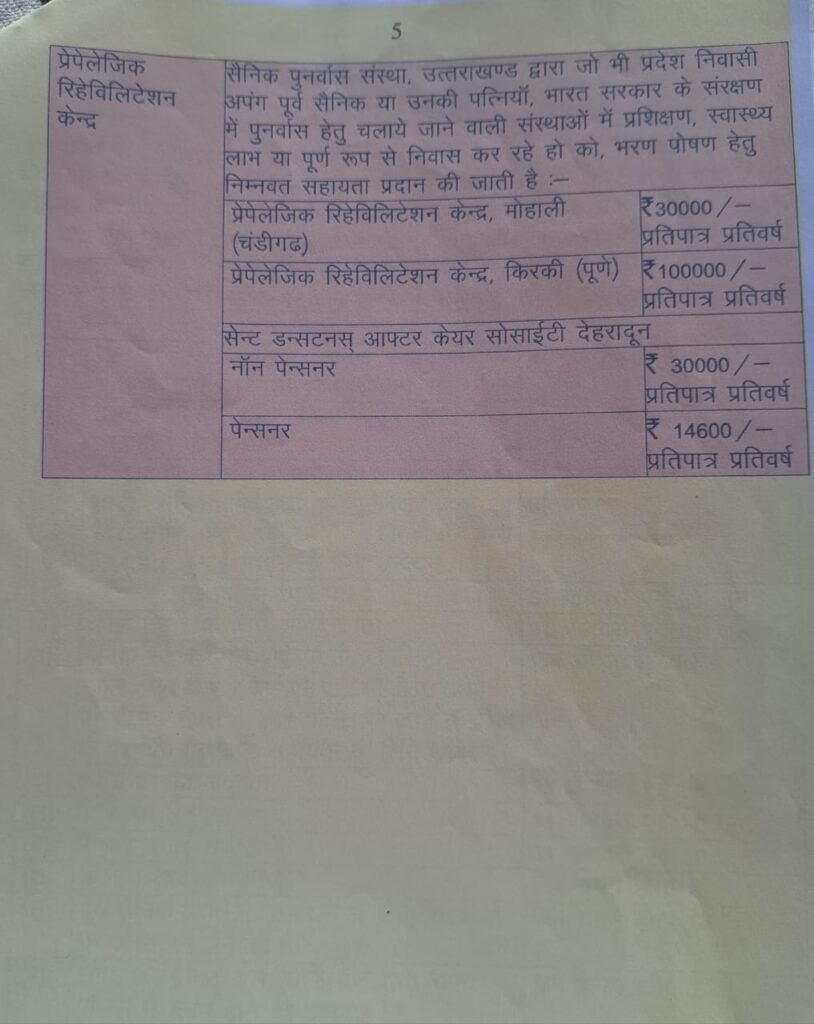 5
प्रेपेलेजिक
रिहेविलिटेशन
केन्द्र
सैनिक पुनर्वास संस्था, उत्तराखण्ड द्वारा जो भी प्रदेश निवासी
अपंग पूर्व सैनिक या उनकी पत्नियॉं, भारत सरकार के संरक्षण
में पुनर्वास हेतु चलाये जाने वाली संस्थाओं में प्रशिक्षण, स्वास्थ्य
लाभ या पूर्ण रूप से निवास कर रहे हो को, भरण पोषण हेतु
निम्नवत सहायता प्रदान की जाती है :–
प्रेपेलेजिक रिहेविलिटेशन केन्द्र, मोहाली
(चंडीगढ)
₹30000/–
प्रतिपात्र प्रतिवर्ष
प्रेपेलेजिक रिहेविलिटेशन केन्द्र, किरकी (पूणे)
₹100000/–
प्रतिपात्र प्रतिवर्ष
सेन्ट डन्सटनस् आफ्टर केयर सोसाईटी देहरादून
नॉन पेन्सनर
₹ 30000/–
प्रतिपात्र प्रतिवर्ष
पेन्सनर
₹ 14600/–
प्रतिपात्र प्रतिवर्ष